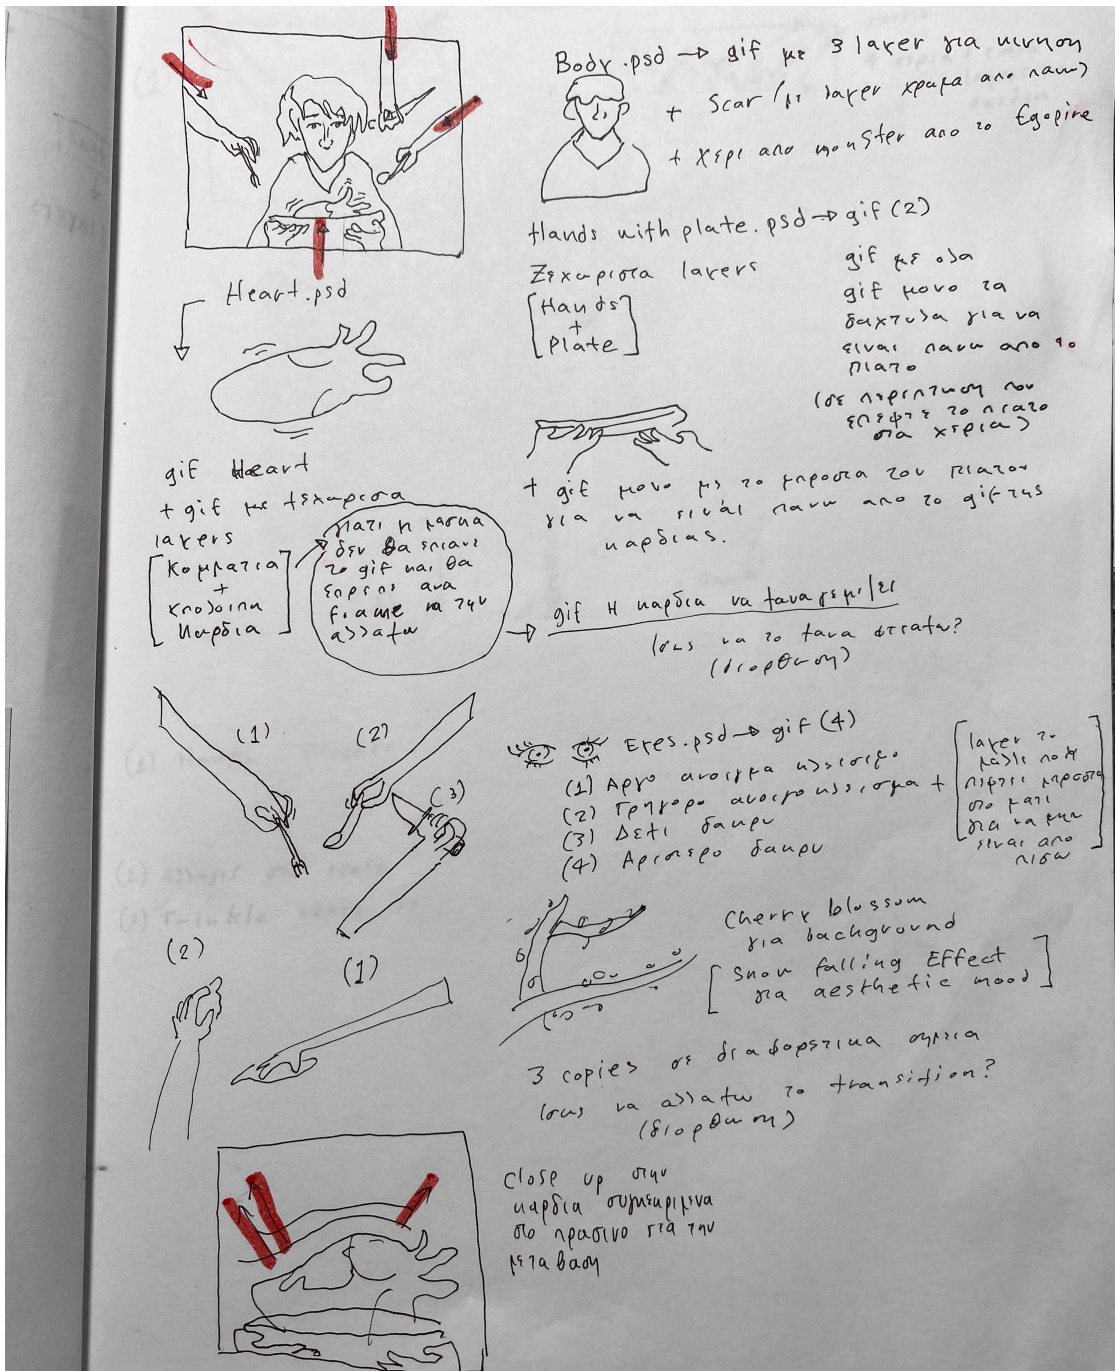 Body.psd → gif με 3 layer για κινηση
+ Scar (με layer χρωμα απο πανω)
+ χερι απο monster απο το
Hands with plate.psd → gif (2)
Ξεχωριστα layers
[Hands
+
Plate]
gif με ολα
gif μονο τα
δαχτυλα για να
ειναι πανω απο το
πιατο
(σε περιπτωση που
επεφτε το πιατο
στα χερια)
+ gif μονο με το μπροστα του πιατου
για να ειναι πανω απο το gif της
καρδιας.
Heart.psd
gif Heart
+ gif με ξεχωριστα
layers
[Κομματια
+
υπολοιπη
καρδια]
γιατι η μασκα
δεν θα επιανε
το gif και θα
επρεπε ανα
frame να την
αλλαξω
→ gif Η καρδια να ξαναγεμιζει
Ισως να το ξανα φτιαξω?
(διορθωση)
(1)
(2)
(3)
Eyes.psd → gif (4)
(1) Αργο ανοιγμα κλεισιμο
(2) Γρηγορο ανοιγοκλεισμα +
(3) Δεξι δακρυ
(4) Αριστερο δακρυ
[layer το
μαλλι που
πεφτει μπροστα
στο ματι
για να μην
ειναι απο
πισω]
(2)
(1)
Cherry blossom
για background
[Snow falling Effect
για aesthetic mood]
3 copies σε διαφορετικα σημεια
Ισως να αλλαξω το transition?
(διορθωση)
Close up στην
καρδια συγκεκριμενα
στο πρασινο για την
μεταβαση